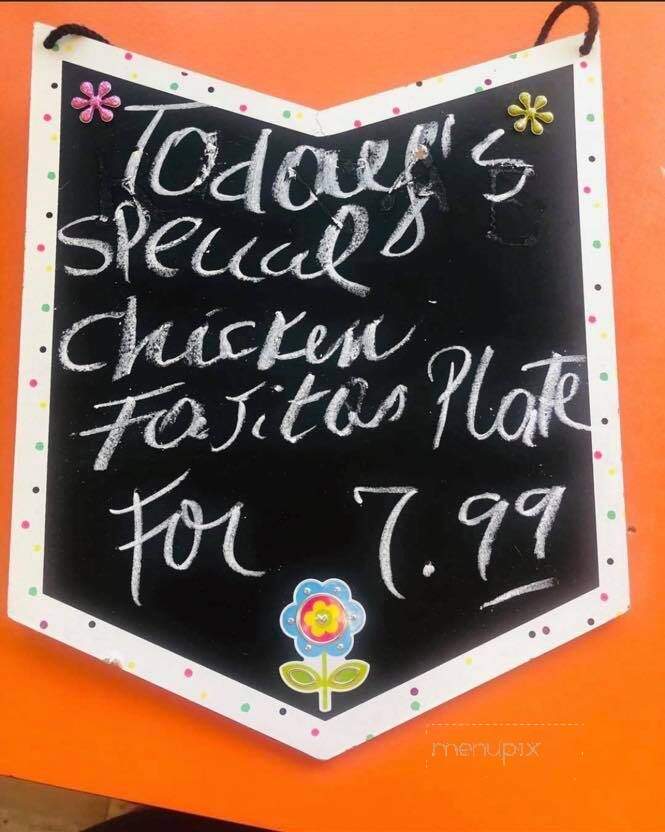 Today's
special
chicken
Fajitas Plate
For 7.99
menupix